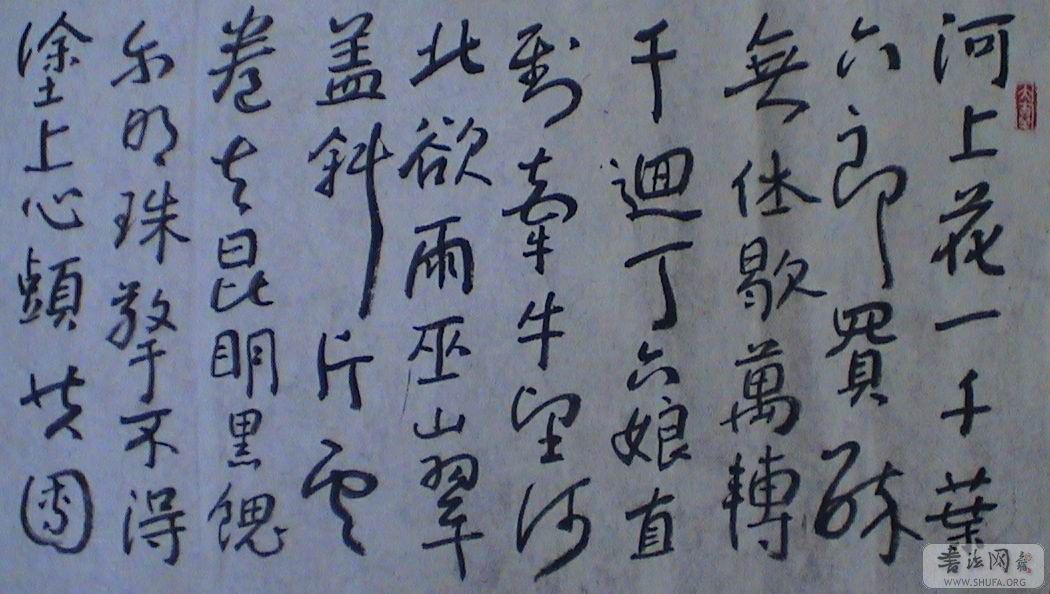 河上花一千葉
六郎買醉
無休歇萬轉
千迴丁六娘直
到牽牛望河
北欲雨巫山翠
盖斜片雲
卷去昆明黑餽
尔明珠擎不得
塗上心頭共團
書法网
WWW.SHUFA.ORG